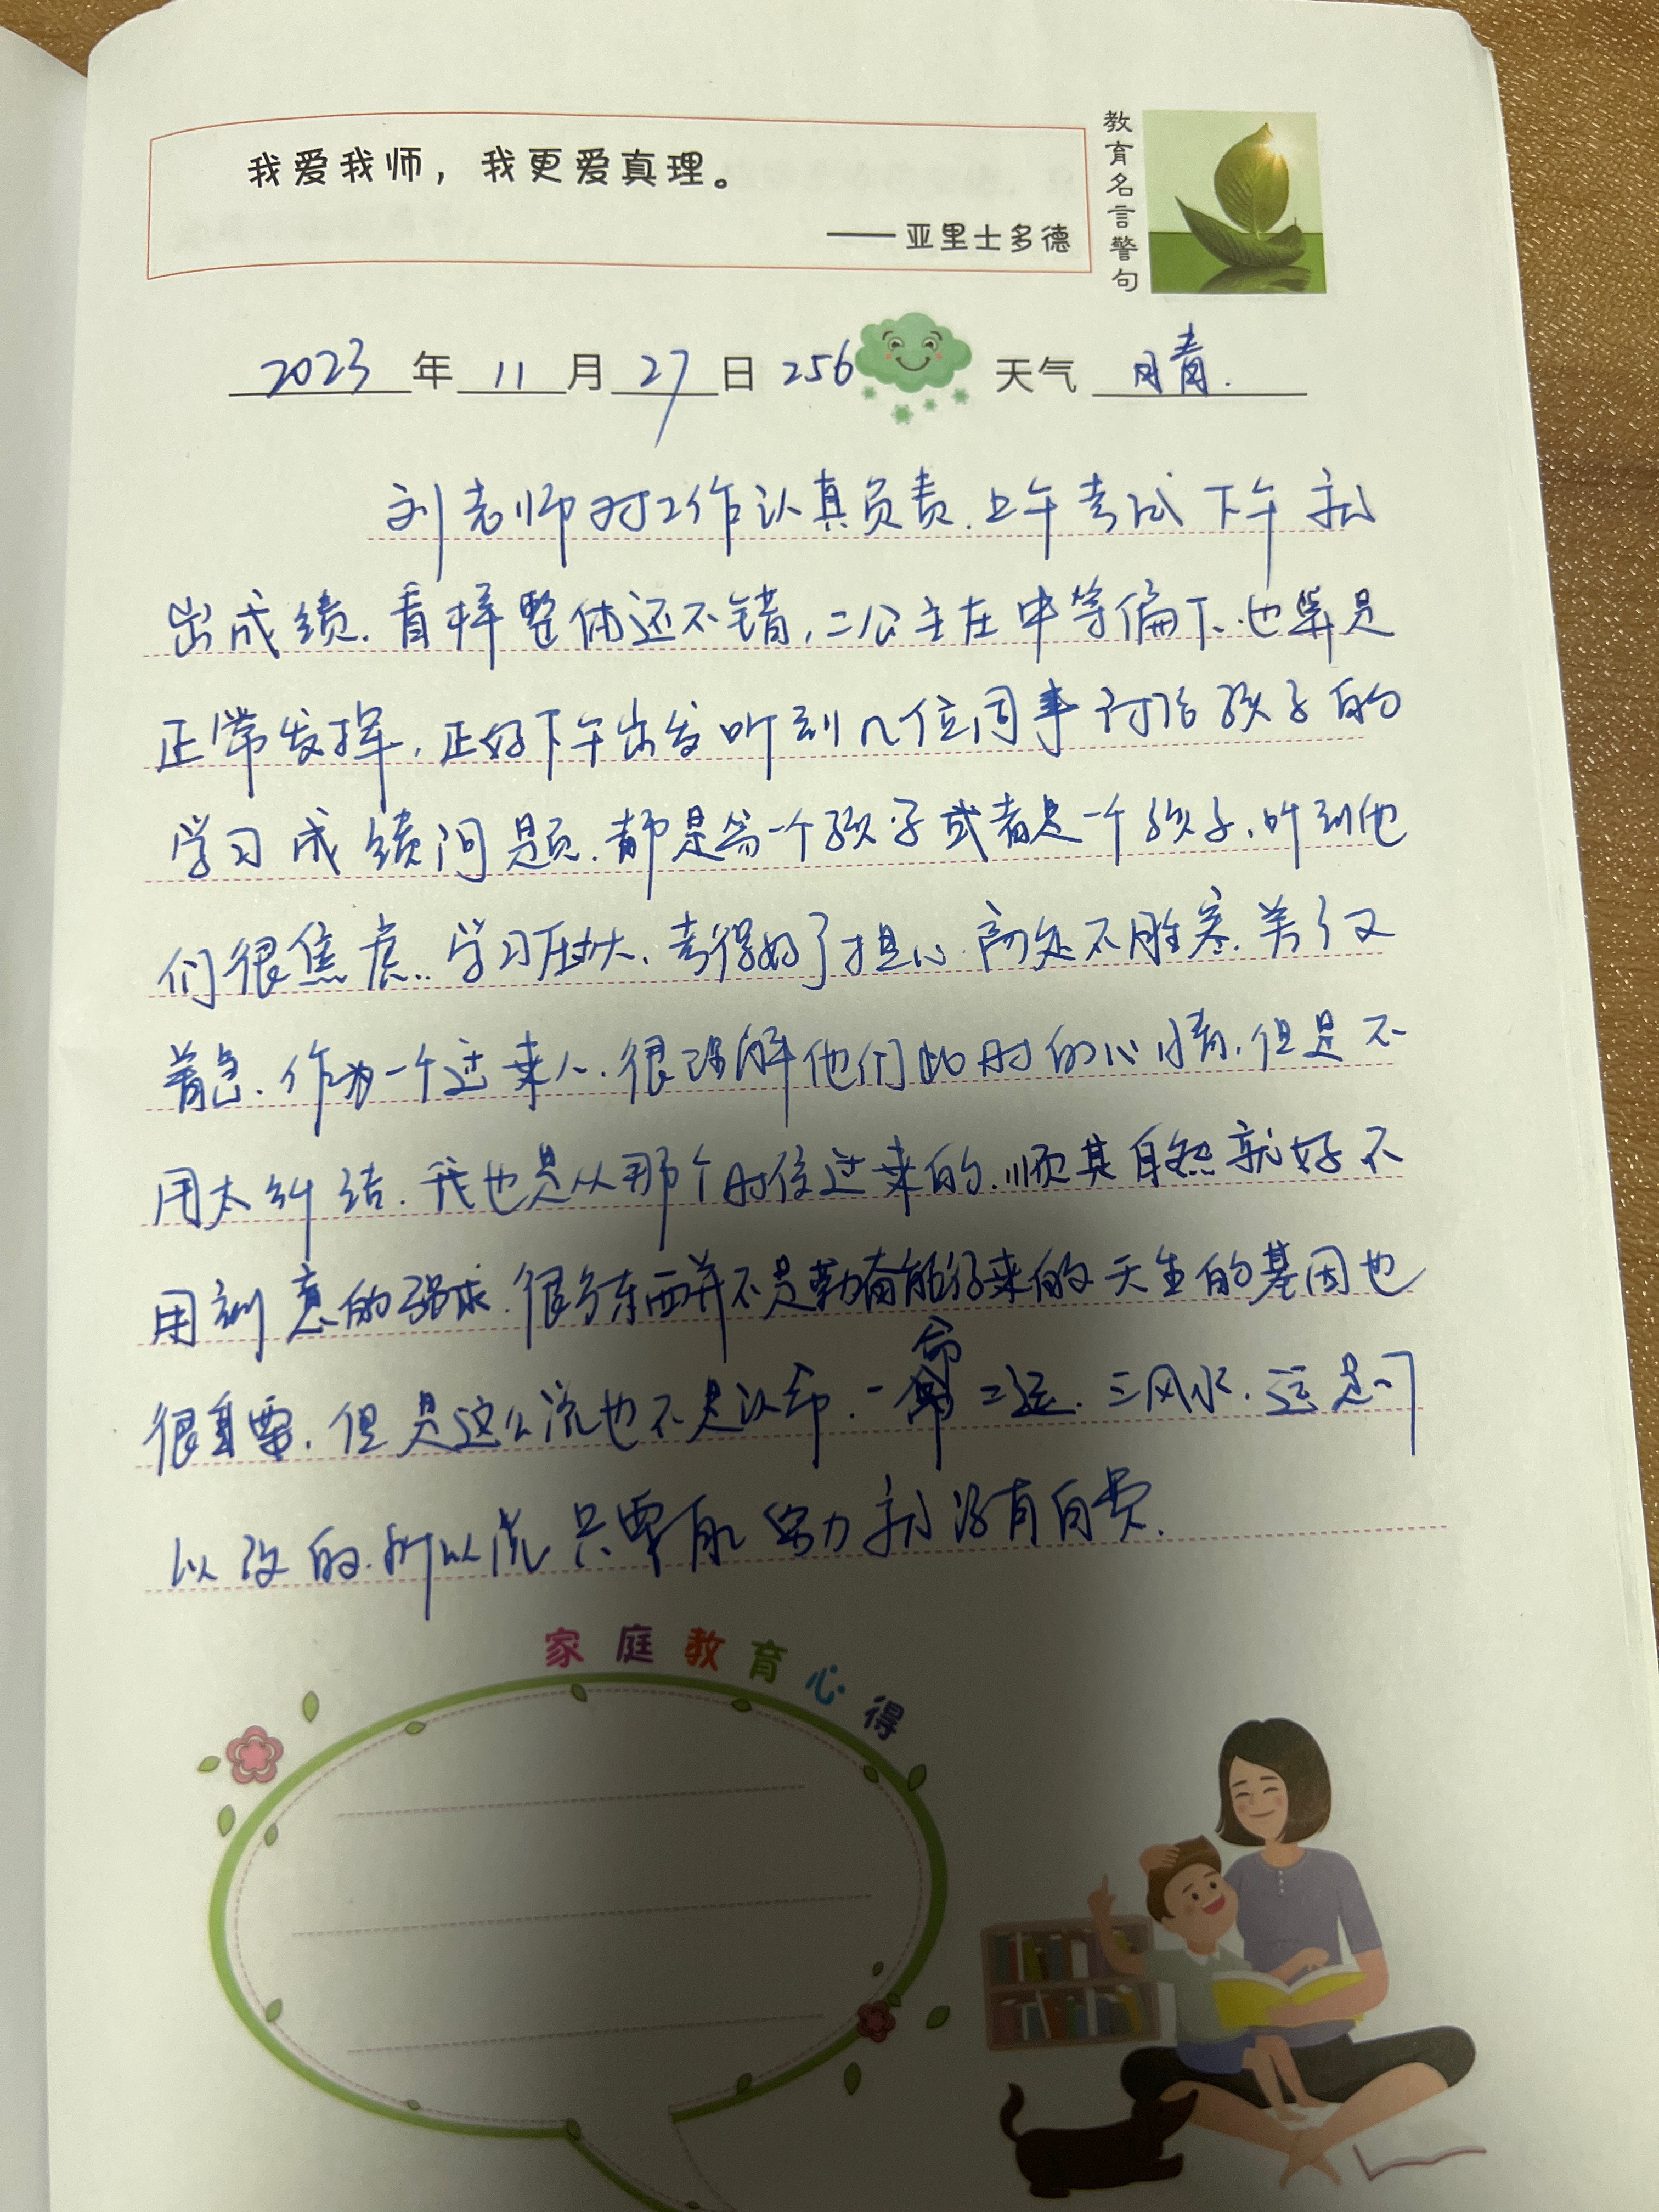 我爱我师，我更爱真理。
——亚里士多德
教育名言警句
2023年11月27日 256 天气 晴.
刘老师对工作认真负责.上午考试下午就
出成绩.看样整体还不错,二公主在中等偏下.也算是
正常发挥.正好下午出发听到几位同事讨论孩子的
学习成绩问题.都是第一个孩子或者是一个孩子.听到他
们很焦虑..学习压力大.考得好了担心高处不胜寒.差了又
着急.作为一个过来人.很理解他们此时的心情.但是不
用太纠结.我也是从那个时候过来的.顺其自然就好不
用刻意的强求.很多东西并不是勤奋能得来的天生的基因也
很重要.但是这么说也不是认命.一命二运.三风水.运是可
以改的.所以说只要有努力就没有白费.
家庭教育心得